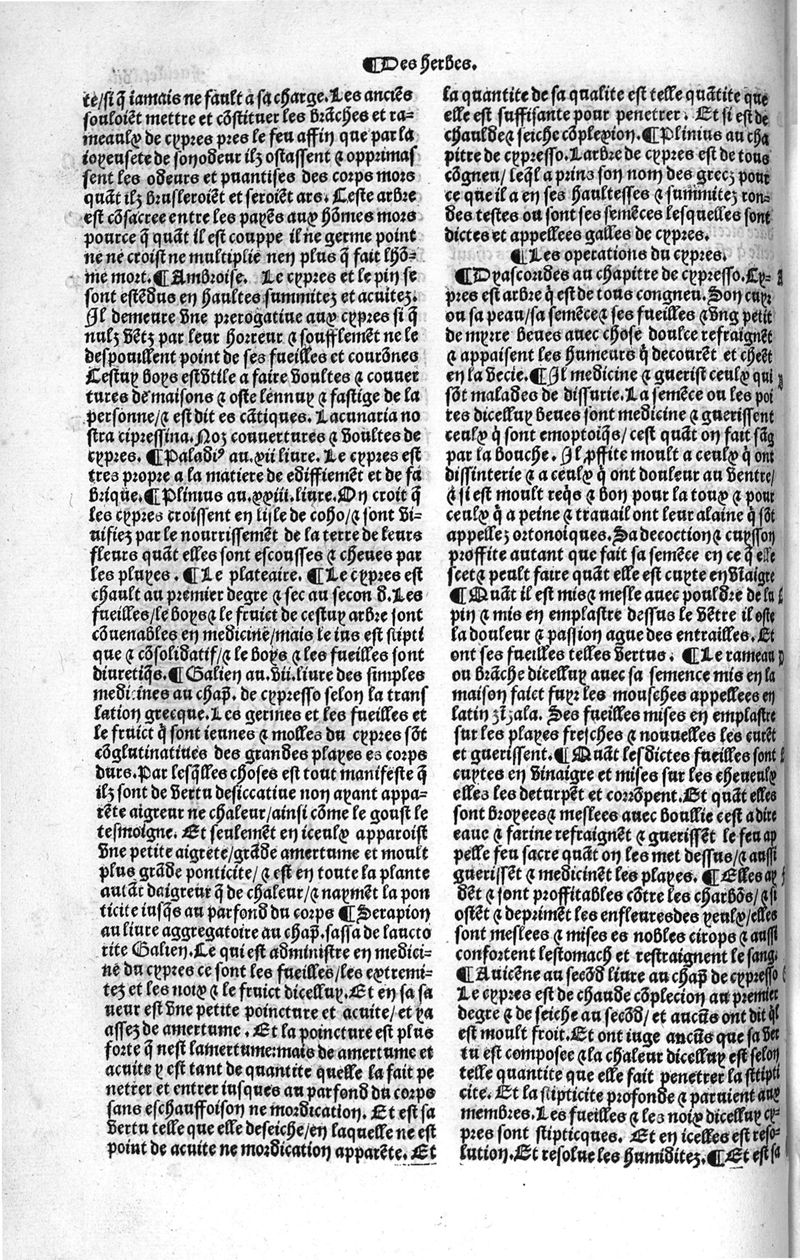 ¶Des herbes.
te/si q̃ iamais ne fault a sa charge. Les anciẽs
souloiẽt mettre et cõstituer les brãches et ra-
meaulx de cypres pres le feu affin que par la
ioyeusete de son odeur ilz ostassent & opprimas
sent les odeurs et puantises des corps mors
quãt ilz brusleroiẽt et seroiẽt ars. Ceste arbre
est cõsacree entre les payẽs aux hõmes mors
pource q̃ quãt il est couppe il ne germe point
ne ne croist ne multiplie nen plus q̃ fait lhõ-
me mort. ¶Ambroise. Le cypres et le pin se
sont estẽdus en haultes summitez et acuitez.
Il demeure vne prerogatiue aux cypres si q̃
nulz vẽtz par leur horreur & soufflemẽt ne le
despouillent point de ses fueilles et courõnes
Cestuy boys est vtile a faire voultes & couuer
tures de maisons & oste lennuy & fastige de la
personne/& est dit es cãtiques. Lacunaria no
stra cipressina. Noz couuertures & voultes de
cypres. ¶Paladiꝰ au .xii. liure. Le cypres est
tres propre a la matiere de ediffiemẽt et de fa
brique. ¶Plinius au .xxiii. liure. On croit q̃
les cypres croissent en lisle de coho/& sont vi-
uifiez par le nourrissemẽt de la terre de leurs
fleurs quãt elles sont escousses & cheues par
les pluyes. ¶Le plateaire. ¶Le cypres est
chault au premier degre & sec au secon d. Les
fueilles/le boys & le fruict de cestuy arbre sont
cõuenables en medicine/mais le ius est stipti
que & cõsolidatif/& le boys & les fueilles sont
diuretiq̃s. ¶Galien au .vii. liure des simples
medicines au chap̃. de cypresso selon la trans
lation grecque. Les germes et les fueilles et
le fruict q̃ sont ieunes & molles du cypres sõt
cõglutinatiues des grandes playes es corps
durs. Par lesq̃lles choses est tout manifeste q̃
ilz sont de vertu desiccatiue non ayant appa-
rẽte aigreur ne chaleur/ainsi cõme le goust le
tesmoigne. Et seulemẽt en iceulx apparoist
vne petite aigrete/grãde amertume et moult
plus grãde ponticite/& est en toute la plante
autãt daigreur q̃ de chaleur/& naymẽt la pon
ticite iusq̃s au parfond du corps ¶Serapion
au liure aggregatoire au chap̃. sassa de laucto
rite Galien. Ce qui est administre en medici-
ne du cypres ce sont les fueilles/les extremi-
tez et les noix & le fruict dicelluy. Et en sa sa
ueur est vne petite poincture et acuite/et ya
assez de amertume. Et la poincture est plus
forte q̃ nest lamertume: mais de amertume et
acuite y est tant de quantite quelle la fait pe
netrer et entrer iusques au parfond du corps
sans eschauffoison ne mordication. Et est sa
vertu telle que elle deseiche/en laquelle ne est
point de acuite ne mordication apparẽte. Et
la quantite de sa qualite est telle quãtite que
elle est suffisante pour penetrer. Et si est de
chaulde & seiche cõplexion. ¶Plinius au cha
pitre de cypresso. Larbre de cypres est de tous
cõgneu/leq̃l a prins son nom des grecz pour
ce que il a en ses haultesses & summitez ron-
des testes ou sont ses semẽces lesquelles sont
dictes et appellees galles de cypres.
¶Les operations du cypres.
¶Dyascorides au chapitre de cypresso. Cy-
pres est arbre q̃ est de tous congneu. Son cuyr
ou sa peau/sa semẽce & ses fueilles & vng petit
de myrre beues auec chose doulce refraignẽt
& appaisent les humeurs q̃ decourẽt et cheẽt
en la vecie. ¶Il medicine & guerist ceulx qui
sõt malades de dissurie. La semẽce ou les poi
res dicelluy beues sont medicine & guerissent
ceulx q̃ sont emoptoiq̃s/cest quãt on fait sãg
par la bouche. Il p̃ffite moult a ceulx q̃ ont
dissinterie & a ceulx q̃ ont douleur au ventre/
& si est moult req̃s & bon pour la toux & pour
ceulx q̃ a peine & trauail ont leur alaine q̃ sõt
appellez ortonoiques. Sa decoction & cuysson
proffite autant que fait sa semẽce en ce q̃ elle
scet & peult faire quãt elle est cuyte en vĩaigre
¶Quãt il est mis & mesle auec pouldre de lu
pin & mis en emplastre dessus le vẽtre il oste
la douleur & passion ague des entrailles. Et
ont ses fueilles telles vertus. ¶Le rameau
ou brãche dicelluy auec sa semence mis en la
maison faict fuyr les mousches appellees en
latin zĩzala. Ses fueilles mises en emplastre
sur les playes fresches & nouuelles les curẽt
et guerissent. ¶Quãt lesdictes fueilles sont
cuytes en vinaigre et mises sur les cheueulx
elles les deturpẽt et corrõpent. Et quãt elles
sont broyees & meslees auec boullie cest a dire
eaue & farine refraignẽt & guerissẽt le feu ap
pelle feu sacre quãt on les met dessus/& aussi
guerissẽt & medicinẽt les playes. ¶Elles ay
dẽt & sont proffitables cõtre les charbõs/& si
ostẽt & deprimẽt les enfleures des yeulx/elles
sont meslees & mises es nobles cirops & aussi
confortent lestomach et restraignent le sang.
¶Auicẽne au secõd liure au chap̃ de cypresso
Le cypres est de chaude cõplecion au premier
degre & de seiche au secõd/et aucũs ont dit q̃l
est moult froit. Et ont iuge aucũs que sa ver
tu est composee & la chaleur dicelluy est selon
telle quantite que elle fait penetrer la stipti
cite. Et la stipticite profonde & paruient aux
membres. Les fueilles & les noix dicelluy cy-
pres sont stipticques. Et en icelles est reso-
lution. Et resolue les humiditez. ¶Et est sa